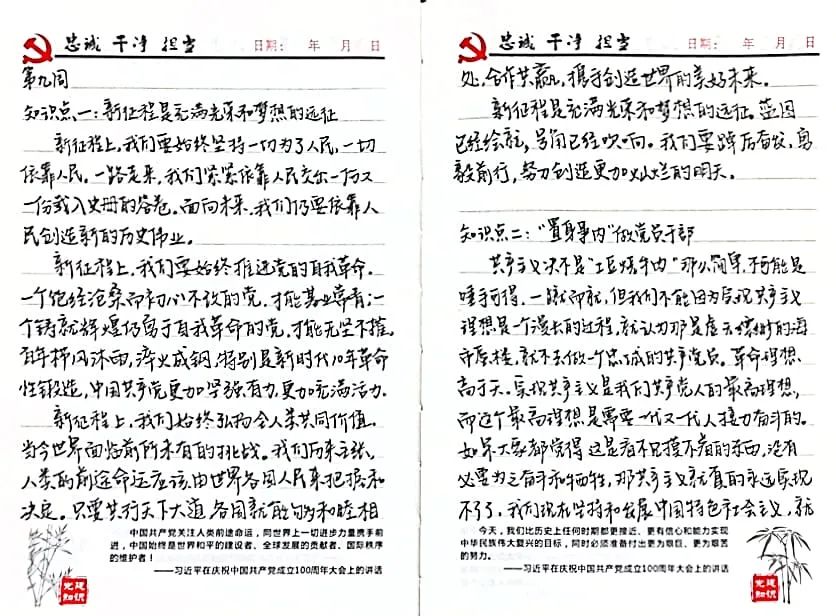 忠诚 干净 担当 日期： 年 月 日
第九周
知识点一：新征程是充满光荣和梦想的远征
新征程上，我们要始终坚持一切为了人民，一切
依靠人民。一路走来，我们紧紧依靠人民交出一份又
一份载入史册的答卷。面向未来，我们仍要依靠人
民创造新的历史伟业。
新征程上，我们要始终推进党的自我革命。
一个饱经沧桑而初心不改的党，才能基业常青；一
个铸就辉煌仍勇于自我革命的党，才能无坚不摧。
百年栉风沐雨，淬火成钢，特别是新时代10年革命
性锻造，中国共产党更加坚强有力、更加充满活力。
新征程上，我们始终弘扬全人类共同价值。
当今世界面临前所未有的挑战。我们历来主张，
人类的前途命运应该由世界各国人民来把握和
决定。只要共行天下大道，各国就能够和睦相
中国共产党关注人类前途命运，同世界上一切进步力量携手前
进，中国始终是世界和平的建设者、全球发展的贡献者、国际秩序
的维护者！
——习近平在庆祝中国共产党成立100周年大会上的讲话
党建
知识
忠诚 干净 担当 日期： 年 月 日
处，合作共赢，携手创造世界的美好未来。
新征程是充满光荣和梦想的远征。蓝图
已经绘就，号角已经吹响。我们要踔厉奋发、勇
毅前行，努力创造更加灿烂的明天。
知识点二："置身事内"做党员干部
共产主义决不是"土豆烧牛肉"那么简单，不可能是
唾手可得、一蹴而就，但我们不能因为实现共产主义
理想是一个漫长的过程，就认为那是虚无缥缈的海
市蜃楼，就不去做一个忠诚的共产党员。革命理想
高于天。实现共产主义是我们共产党人的最高理想，
而这个最高理想是需要一代又一代人接力奋斗的。
如果大家都觉得这是看不见摸不着的东西，没有
必要为之奋斗和牺牲，那共产主义就真的永远实现
不了了，我们现在坚持和发展中国特色社会主义，就
今天，我们比历史上任何时期都更接近、更有信心和能力实现
中华民族伟大复兴的目标，同时必须准备付出更为艰巨、更为艰苦
的努力。
——习近平在庆祝中国共产党成立100周年大会上的讲话
党建
知识